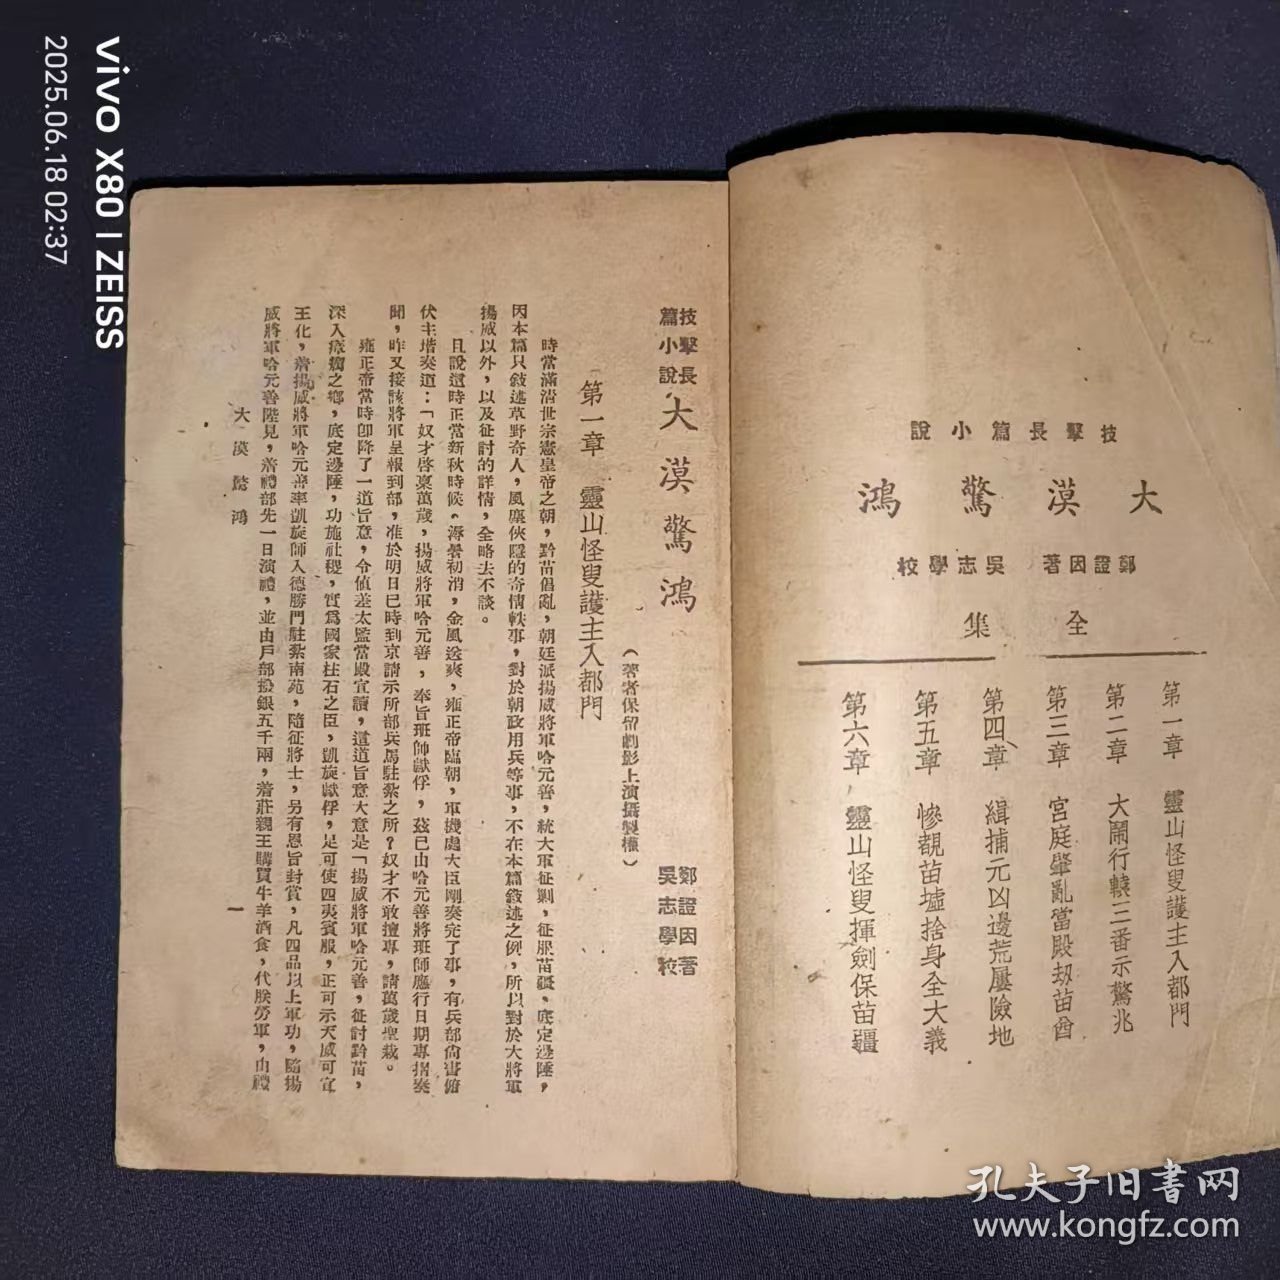 技擊長篇小說
大漠驚鴻
鄭證因著 吳志學校
全集
第一章 靈山怪叟護主入都門
第二章 大鬧行轅三番示驚兆
第三章 宮庭肇亂當殿刼苗酋
第四章 緝捕元凶邊荒屢險地
第五章 慘覩苗墟捨身全大義
第六章 靈山怪叟揮劍保苗疆
技擊長篇小說 大漠驚鴻
鄭證因著
吳志學校
(著者保留劇影上演攝製權)
第一章 靈山怪叟護主入都門
時當滿清世宗憲皇帝之朝,黔苗倡亂,朝廷派揚威將軍哈元善,統大軍征剿,征服苗疆、底定邊陲,
因本篇只敍述草野奇人,風塵俠隱的奇情軼事,對於朝政用兵等事,不在本篇敍述之例,所以對於大將軍
揚威以外,以及征討的詳情,全略去不談。
且說這時正當新秋時候,溽暑初消,金風送爽,雍正帝臨朝,軍機處大臣剛奏完了事,有兵部尚書俯
伏丰堦奏道:「奴才啓稟萬歲,揚威將軍哈元善,奉旨班師獻俘,茲已由哈元善將班師應行日期專摺奏
聞,昨又接該將軍呈報到部,准於明日巳時到京請示所部兵馬駐紮之所?奴才不敢擅專,請萬歲聖裁。
雍正帝當時卽降了一道旨意,令値差太監當殿宣讀,這道旨意大意是「揚威將軍哈元善,征討黔苗,
深入瘴癘之鄉,底定邊陲,功施社稷,實爲國家柱石之臣,凱旋獻俘,是可使四夷賓服,正可示天威可宣
王化,着揚威將軍哈元善率凱旋師入德勝門駐紮南苑,隨征將士,另有恩旨封賞,凡四品以上軍功,隨揚
威將軍哈元善陛見,着禮部先一日演禮,並由戶部撥銀五千兩,着莊親王購買牛羊酒食,代朕勞軍,由禮
大漠驚鴻 一
vivo X80 | ZEISS
2025.06.18 02:37
孔夫子旧书网
www.kongfz.com